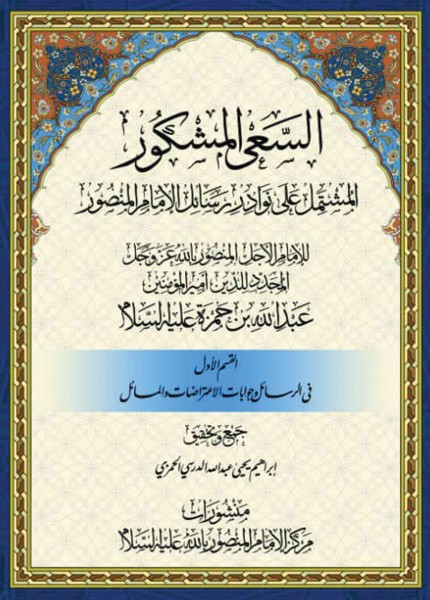 السَّعي المشكور
المشتمل على نوادر رسائل الإمام المنصور
للإمام الأجل المنصور بالله عز وجل
المجدد للدين أمير المؤمنين
عبد الله بن حمزة عليه السلام
القسم الأول
في الرسائل وجوابات الاعتراضات والمسائل
جمع وتحقيق
إبراهيم يحيى عبدالله الدرسي الحمزي
منشورات
مركز الإمام المنصور بالله عليه السلام